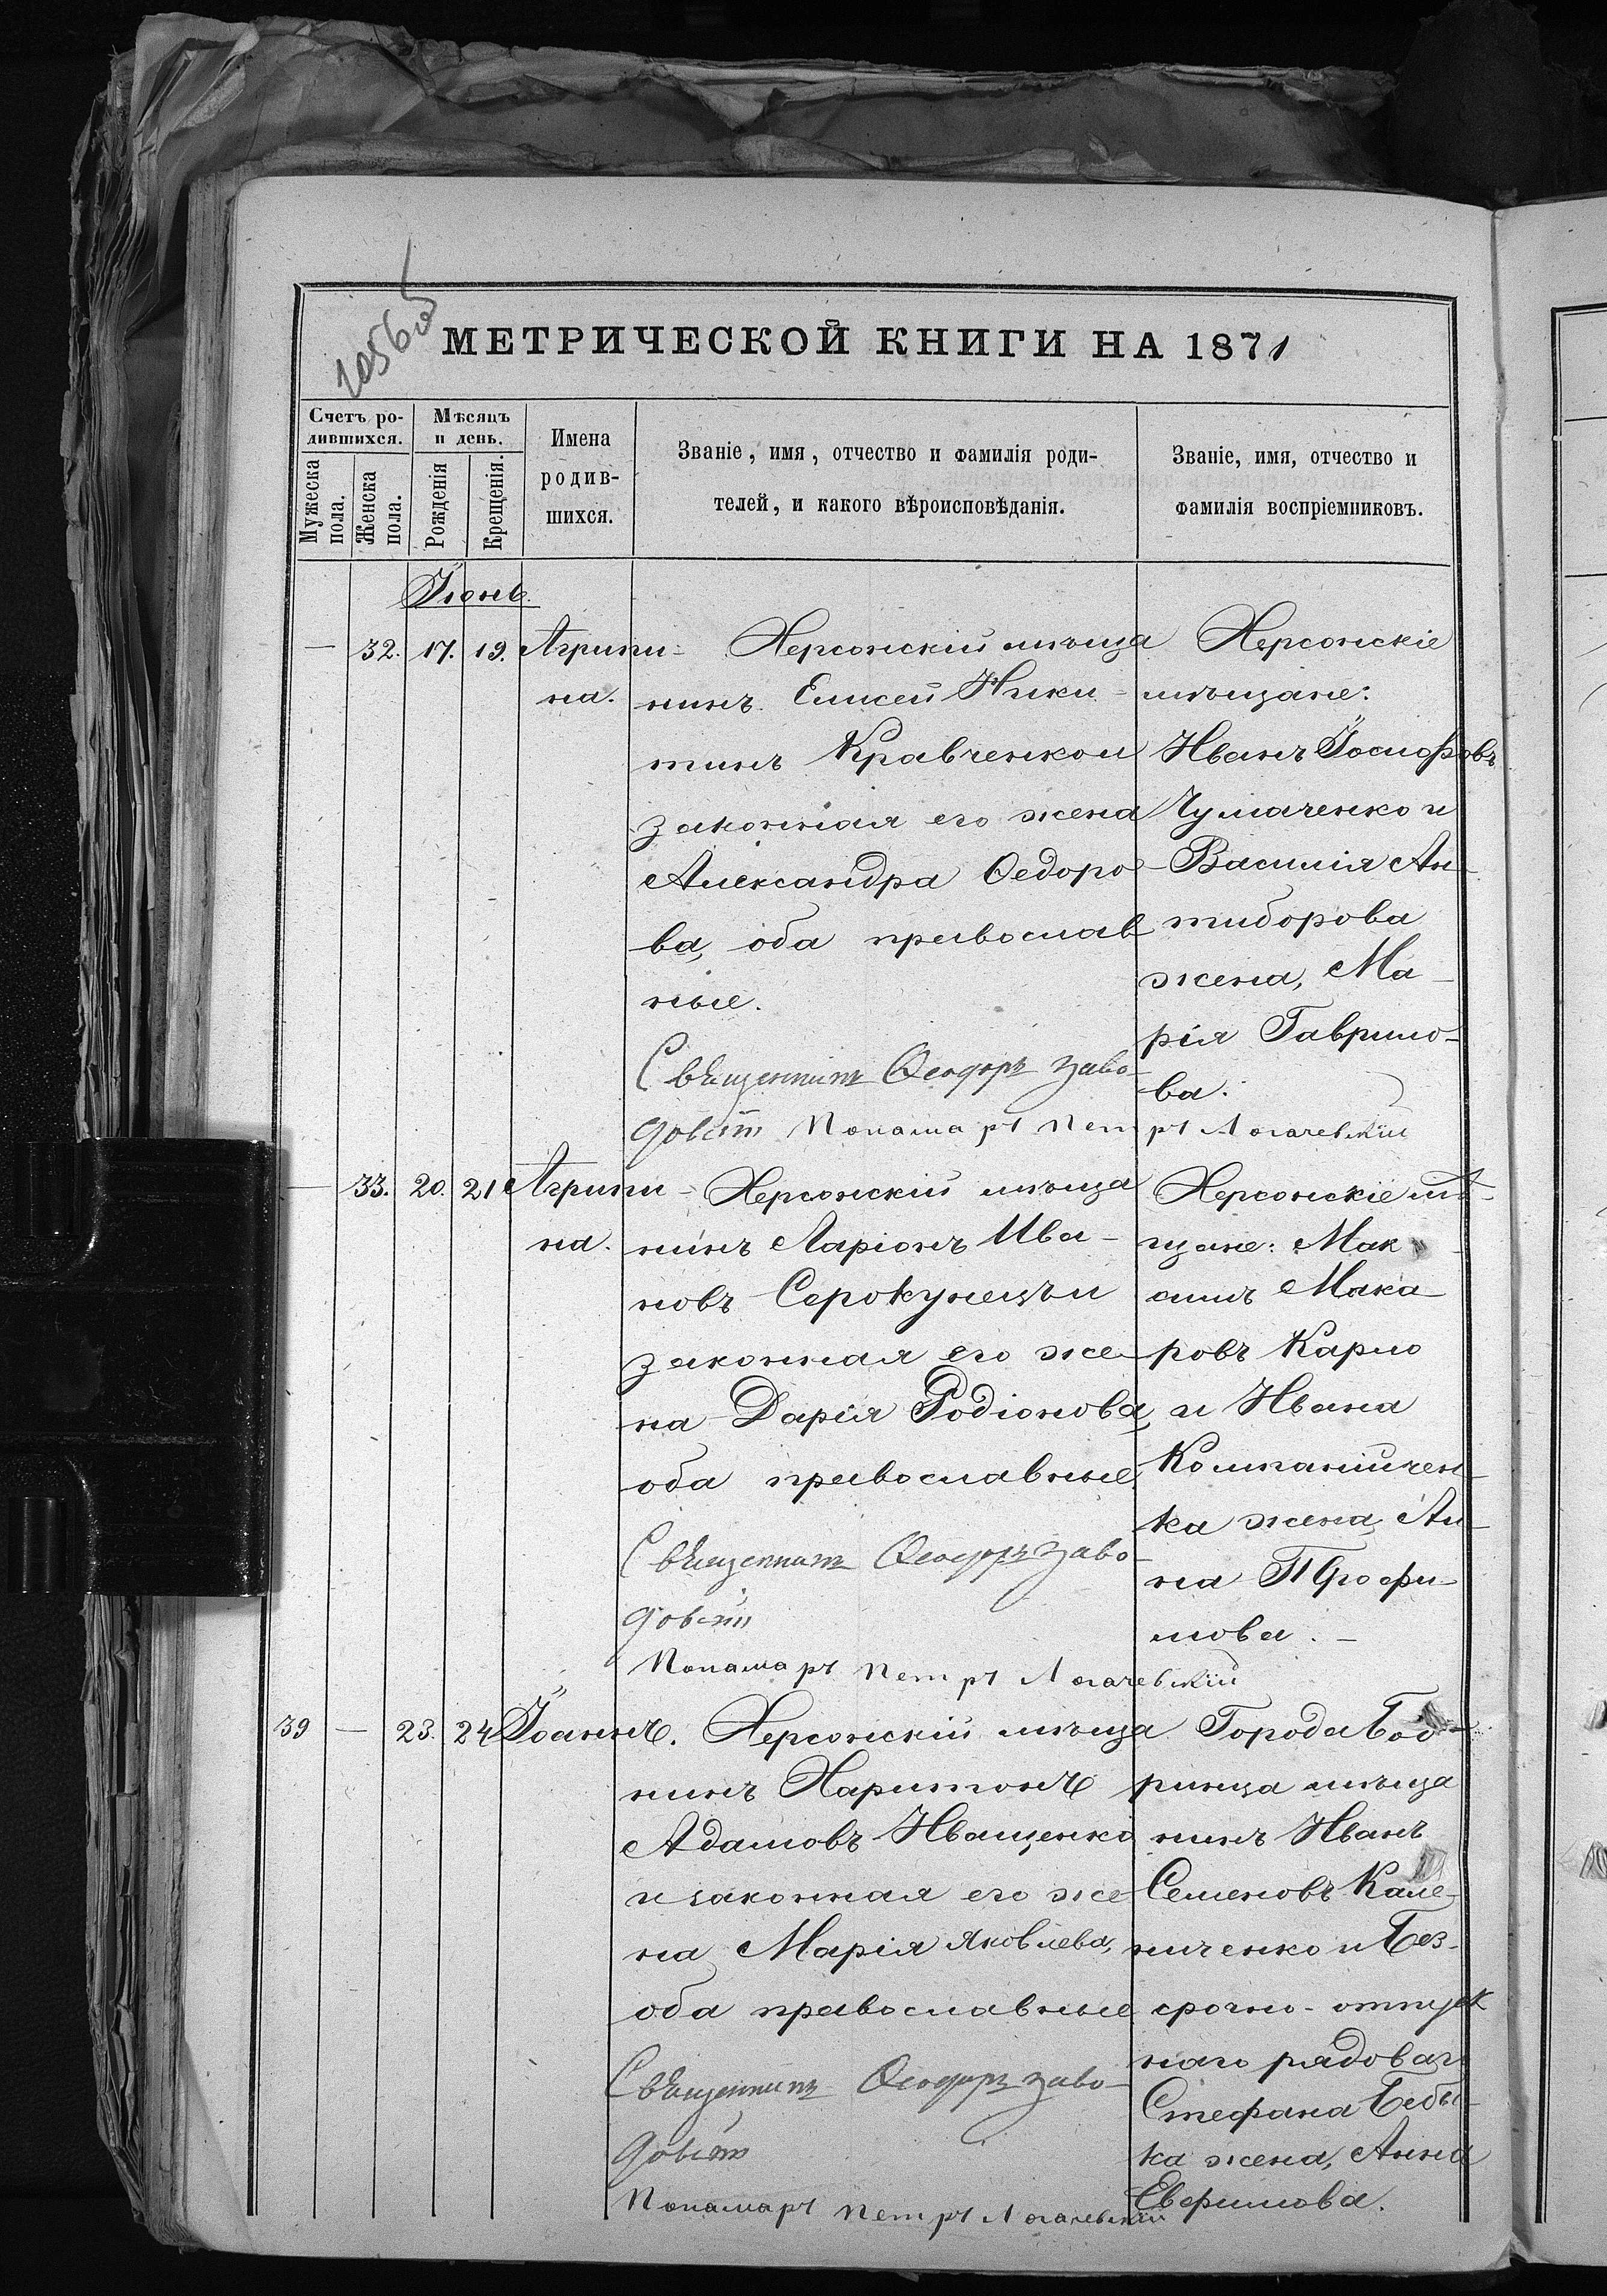 1056об
МЕТРИЧЕСКОЙ КНИГИ НА 1871
Счетъ ро-
дившихся.
Мужеска пола.
Женска пола.
Мѣсяцъ
и день.
Рожденія
Крещенія.
Имена
родив-
шихся.
Званіе, имя, отчество и фамилія роди-
телей, и какого вѣроисповѣданія.
Званіе, имя, отчество и
фамилія воспріемниковъ.
Іюнь.
— 32. 17. 19. Агрипи-
на.
Херсонскій мѣща
нинъ Елисей Ники-
тинъ Кравченко и
законная его жена
Александра Ѳедоро-
ва, оба православ
ные.
Священникъ Ѳеодоръ Заво-
Понамарь Петръ Логачевскій
Херсонскіе
мѣщане:
Иванъ Іосифовъ
Чумаченко и
Василія Ан-
тиборова
жена, Ма-
рія Гаврило-
ва.
— 33. 20. 21 Агрипи-
на.
Херсонскій мѣща
нинъ Ларіонъ Ива-
новъ Серокунецъ и
законная его же-
на Дарія Родіонова,
оба православные.
Священникъ Ѳеодоръ Заво-
Понамарь Петръ Логачевскій
Херсонскіе мѣ-
щане: Мак
симъ Мака-
ровъ Карло
и Ивана
Компанійчен-
ка жена, Ан-
на Трофи-
мова. —
39 — 23. 24 Іоаннъ.
Херсонскій мѣща
нинъ Харитонъ
Адамовъ Иващенко
и законная его же-
на Марія Яковлева,
оба православные
Священникъ Ѳеодоръ Заво-
Понамарь Петръ Логачевскій
Города Боб-
ринца мѣща
нинъ Иванъ
Семеновъ Кале-
ниченко и Без-
срочно-отпуск
наго рядоваго
Стефана Бебы-
ка жена, Анна
Евфимова.